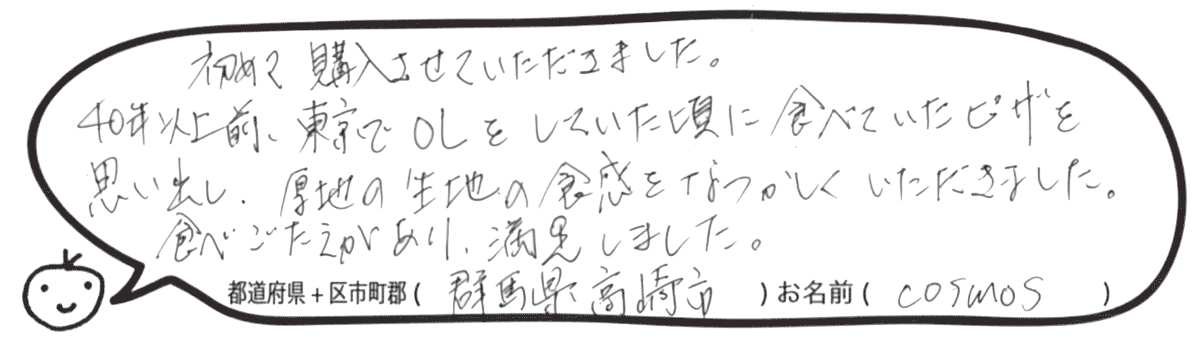 初めて購入させていただきました。
40年以上前、東京でOLをしていた頃に食べていたピザを
思い出し、厚地の生地の食感をなつかしくいただきました。
食べごたえがあり、満足しました。
都道府県+区市町郡(群馬県高崎市)お名前(cosmos)